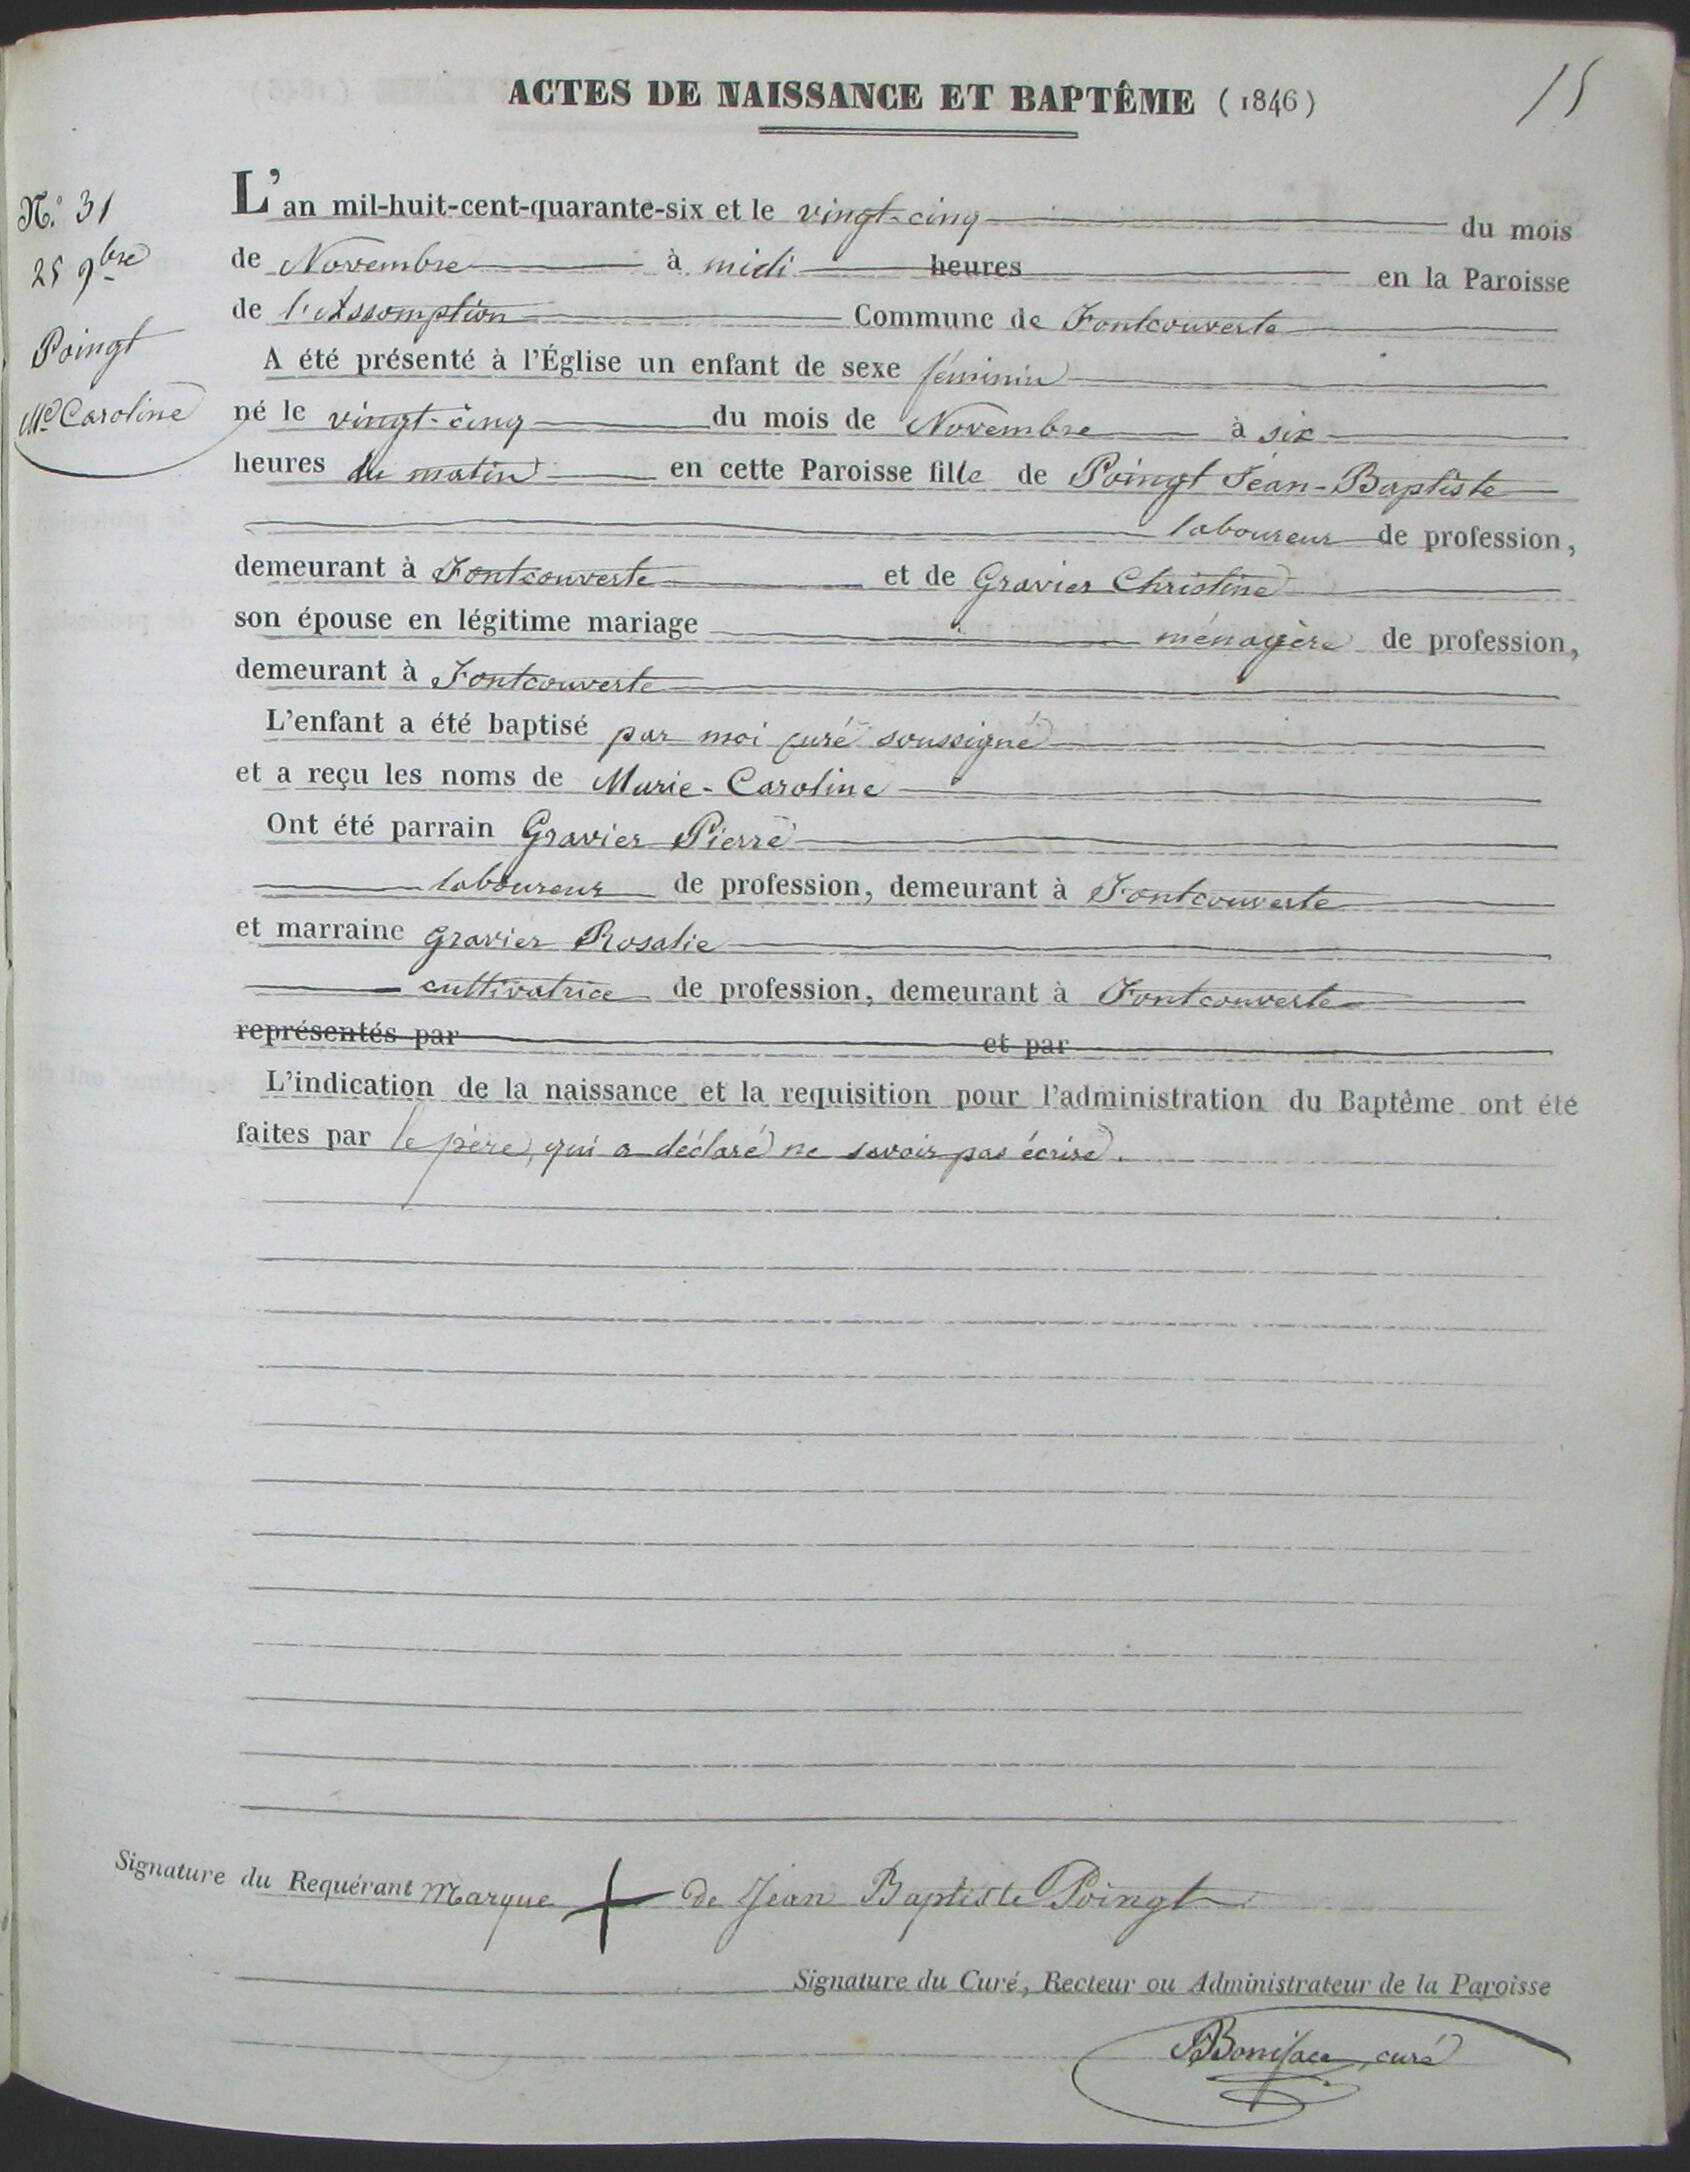 ACTES DE NAISSANCE ET BAPTÊME (1846)
15
N.° 31
25 9bre
Poingt
Me Caroline
L'an mil-huit-cent-quarante-six et le vingt-cinq du mois
de Novembre à midi heures en la Paroisse
de l'Assomption Commune de Fontcouverte
A été présenté à l'Église un enfant de sexe féminin
né le vingt-cinq du mois de Novembre à six
heures du matin en cette Paroisse fille de Poingt Jean-Baptiste
laboureur de profession,
demeurant à Fontcouverte et de Gravier Christine
son épouse en légitime mariage ménagère de profession,
demeurant à Fontcouverte
L'enfant a été baptisé par moi curé soussigné
et a reçu les noms de Marie-Caroline
Ont été parrain Gravier Pierre
laboureur de profession, demeurant à Fontcouverte
et marraine Gravier Rosalie
cultivatrice de profession, demeurant à Fontcouverte
représentés par et par
L'indication de la naissance et la requisition pour l'administration du Baptême ont été
faites par le père, qui a déclaré ne savoir pas écrire.
Signature du Requérant Marque + de Jean Baptiste Poingt
Signature du Curé, Recteur ou Administrateur de la Paroisse
Boniface, curé